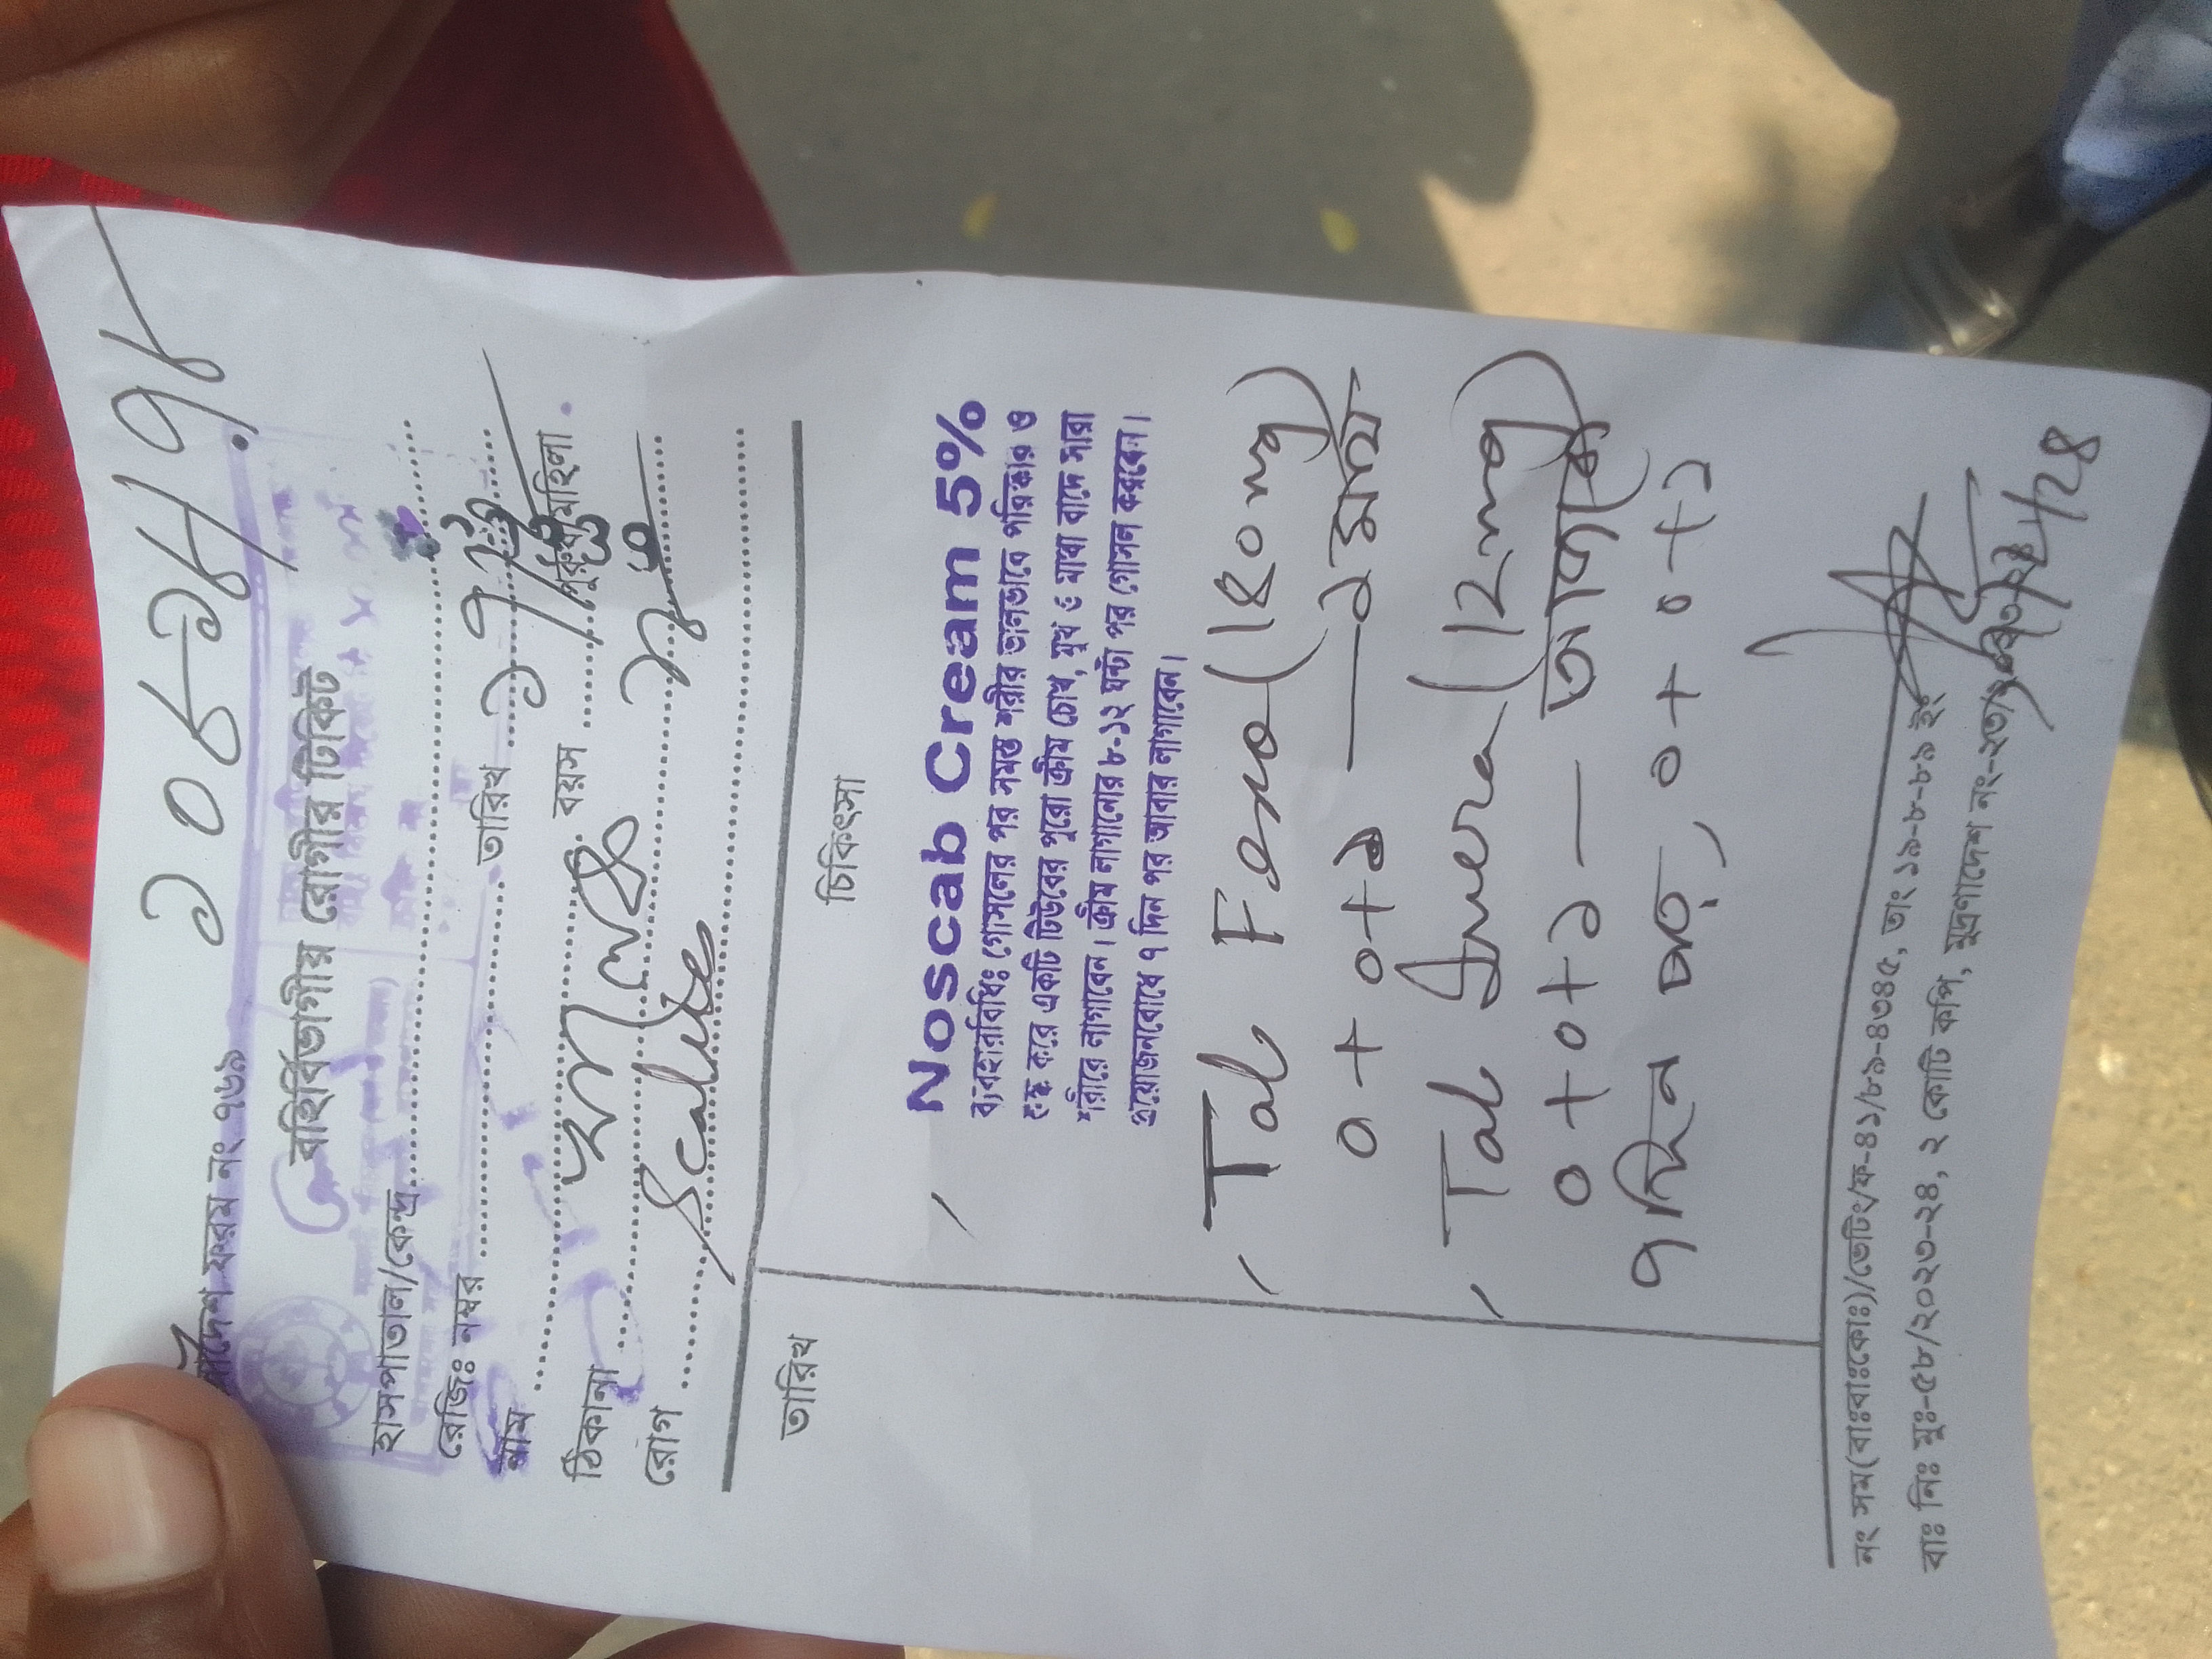 দেশ ফরম নং ৭৬৯
বহির্বিভাগীয় রোগীর টিকিট
হাসপাতাল/কেন্দ্র
রেজিঃ নম্বর তারিখ
নাম বয়স পুরুষ/মহিলা
ঠিকানা
রোগ Scabies
তারিখ
চিকিৎসা
Noscab Cream 5%
ব্যবহারবিধিঃ গোসলের পর সমস্ত শরীর ভালভাবে পরিস্কার ও
শুষ্ক করে একটি টিউবের পুরো ক্রীম চোখ, মুখ ও মাথা বাদে সারা
শরীরে লাগাবেন। ক্রীম লাগানোর ৮-১২ ঘন্টা পর গোসল করবেন।
প্রয়োজনবোধে ৭ দিন পর আবার লাগাবেন।
Tab Fexo (180mg)
০ + ০ + ১ — ১ মাস
Tab (12mg)
০ + ০ + ১ — আজকে
৭ দিন পর, ০ + ০ + ১
নং সম(বাঃবাঃকোঃ)/ভেটিং/ফ-৪১/৮৯-৪৩৪৫, তাং ১৯-৮-৮৯ ইং
বাঃ নিঃ মুঃ-৫৮/২০২৩-২৪, ২ কোটি কপি, মুদ্রণাদেশ নং-২৩/২০২৩-২৪